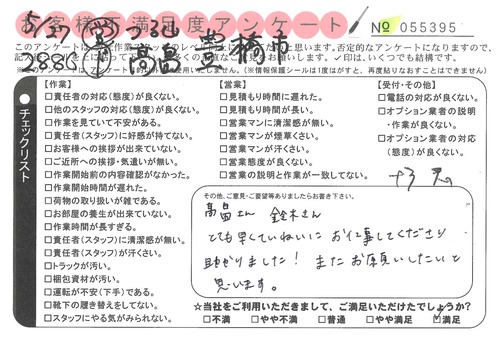 お客様不満足度アンケート
No 055395
5/27
豊橋市
288K
高畠
【作業】
□責任者の対応(態度)が良くない。
□他のスタッフの対応(態度)が良くない。
□作業を見ていて不安がある。
□責任者(スタッフ)に好感が持てない。
□お客様への挨拶が出来ていない。
□ご近所への挨拶・気遣いが無い。
□作業開始前の内容確認がなかった。
□作業開始時間が遅れた。
□荷物の取り扱いが雑である。
□お部屋の養生が出来ていない。
□作業時間が長すぎる。
□責任者(スタッフ)に清潔感が無い。
□責任者(スタッフ)が汗くさい。
□トラックが汚い。
□梱包資材が汚い。
□運転が不安(下手)である。
□靴下の履き替えをしてない。
□スタッフにやる気がみられない。
【営業】
□見積もり時間に遅れた。
□見積もり時間が長い。
□営業マンに清潔感が無い。
□営業マンが煙草くさい。
□営業マンが汗くさい。
□営業態度が良くない。
□営業の説明と作業が一致してない。
【受付・その他】
□電話の対応が良くない。
□オプション業者の説明
・作業が良くない。
□オプション業者の対応
(態度)が良くない。
チェックリスト
その他、ご意見・ご要望等ありましたらお書き下さい。
高畠さん 鈴木さん
とても早くていねいに お仕事してくださり
助かりました! またお願いしたいと
思います。
☆当社をご利用いただきまして、ご満足いただけたでしょうか?
□不満 □やや不満 □普通 □やや満足 □満足